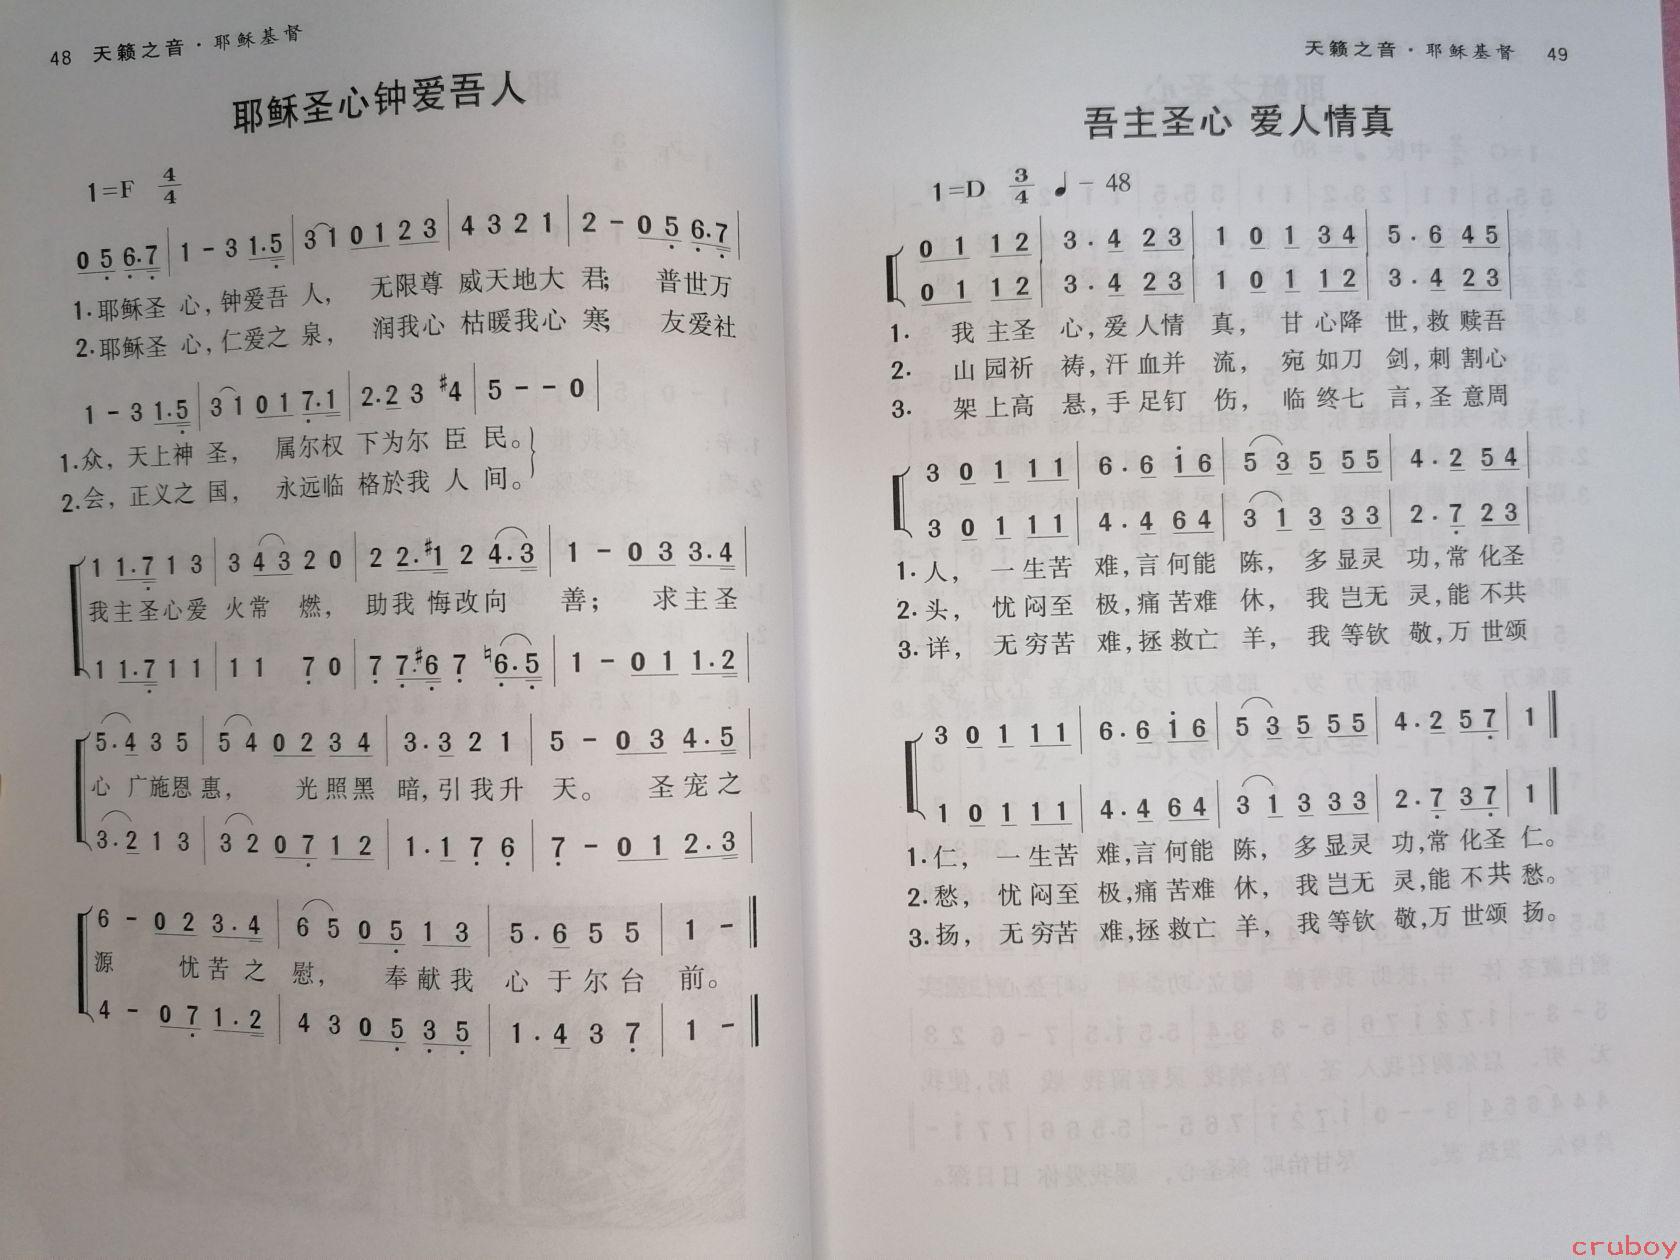 48 天籁之音·耶稣基督
耶稣圣心钟爱吾人
1=F 4/4
0 5 6·7 | 1 - 3 1·5 | 3 1 0 1 2 3 | 4 3 2 1 | 2 - 0 5 6·7 |
1·耶稣圣 心,钟爱吾 人, 无限尊 威天地大 君; 普世万
2·耶稣圣 心,仁爱之 泉, 润我心 枯暖我心 寒; 友爱社
1 - 3 1·5 | 3 1 0 1 7·1 | 2·2 3 #4 | 5 - - 0 |
1·众, 天上神 圣, 属尔权 下为尔 臣 民。
2·会, 正义之 国, 永远临 格於我 人 间。
1 1·7 1 3 | 3 4 3 2 0 | 2 2·#1 2 4·3 | 1 - 0 3 3·4 |
我主圣心爱 火常 燃, 助我 悔改向 善; 求主圣
1 1·7 1 1 | 1 1 7 0 | 7 7·#6 7 ♮6·5 | 1 - 0 1 1·2 |
5·4 3 5 | 5 4 0 2 3 4 | 3·3 2 1 | 5 - 0 3 4·5 |
心 广施恩 惠, 光照黑 暗,引我升 天。 圣宠之
3·2 1 3 | 3 2 0 7 1 2 | 1·1 7 6 | 7 - 0 1 2·3 |
6 - 0 2 3·4 | 6 5 0 5 1 3 | 5·6 5 5 | 1 - ‖
源 忧苦之 慰, 奉献我 心 于尔台 前。
4 - 0 7 1·2 | 4 3 0 5 3 5 | 1·4 3 7 | 1 - ‖
天籁之音·耶稣基督 49
吾主圣心 爱人情真
1=D 3/4 ♩- 48
0 1 1 2 | 3·4 2 3 | 1 0 1 3 4 | 5·6 4 5 |
0 1 1 2 | 3·4 2 3 | 1 0 1 1 2 | 3·4 2 3 |
1· 我 主圣 心,爱 人情 真, 甘 心降 世,救 赎吾
2· 山 园祈 祷,汗 血并 流, 宛 如刀 剑,刺 割心
3· 架 上高 悬,手 足钉 伤, 临 终七 言,圣 意周
3 0 1 1 1 | 6·6 i 6 | 5 3 5 5 5 | 4·2 5 4 |
3 0 1 1 1 | 4·4 6 4 | 3 1 3 3 3 | 2·7 2 3 |
1·人, 一 生苦 难,言 何能 陈, 多 显灵 功,常 化圣
2·头, 忧 闷至 极,痛 苦难 休, 我 岂无 灵,能 不共
3·详, 无 穷苦 难,拯 救亡 羊, 我 等钦 敬,万 世颂
3 0 1 1 1 | 6·6 i 6 | 5 3 5 5 5 | 4·2 5 7 | 1 ‖
1 0 1 1 1 | 4·4 6 4 | 3 1 3 3 3 | 2·7 3 7 | 1 ‖
1·仁, 一 生苦 难,言 何能 陈, 多 显灵 功,常 化圣 仁。
2·愁, 忧 闷至 极,痛 苦难 休, 我 岂无 灵,能 不共 愁。
3·扬, 无 穷苦 难,拯 救亡 羊, 我 等钦 敬,万 世颂 扬。
cruboy